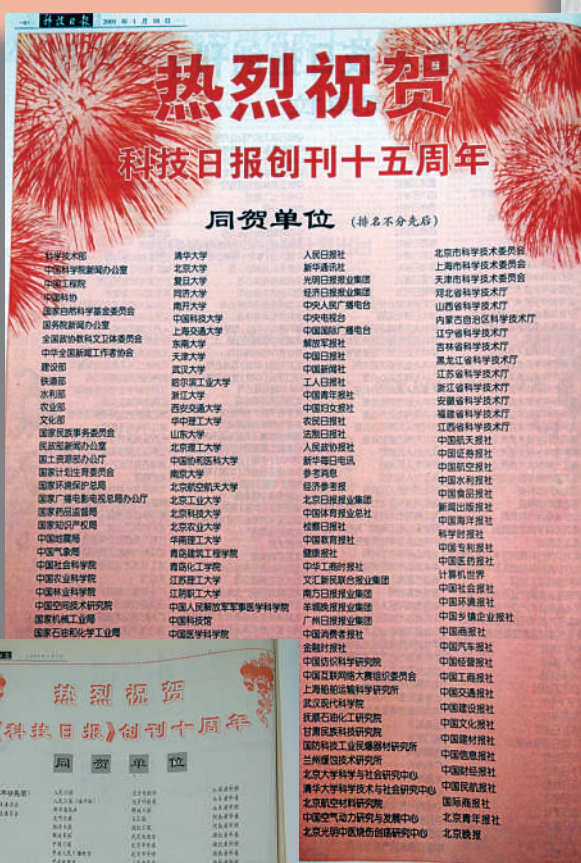 科技日報 2001年1月18日
热烈祝贺
科技日报创刊十五周年
同贺单位 (排名不分先后)
科学技术部
中国科学院新闻办公室
中国工程院
中国科协
国家自然科学基金委员会
国务院新闻办公室
全国政协教科文卫体委员会
中华全国新闻工作者协会
建设部
铁道部
水利部
农业部
文化部
国家民族事务委员会
民政部新闻办公室
国土资源部办公厅
国家计划生育委员会
国家环境保护总局
国家广播电影电视总局办公厅
国家药品监督局
国家知识产权局
中国地震局
中国气象局
中国社会科学院
中国农业科学院
中国林业科学院
中国空间技术研究院
国家机械工业局
国家石油和化学工业局
清华大学
北京大学
复旦大学
同济大学
南开大学
中国科技大学
上海交通大学
东南大学
天津大学
武汉大学
哈尔滨工业大学
浙江大学
西安交通大学
华中理工大学
山东大学
北京理工大学
中国协和医科大学
南京大学
北京航空航天大学
北京工业大学
北京科技大学
北京农业大学
华南理工大学
青岛建筑工程学院
青岛化工学院
江苏理工大学
江阴职工大学
中国人民解放军军事医学科学院
中国科技馆
中国医学科学院
人民日报社
新华通讯社
光明日报报业集团
经济日报报业集团
中央人民广播电台
中央电视台
中国国际广播电台
解放军报社
中国日报社
中国新闻社
工人日报社
中国青年报社
中国妇女报社
农民日报社
法制日报社
人民政协报社
新华每日电讯
参考消息
经济参考报
北京日报报业集团
中国体育报业总社
检察日报社
中国教育报社
健康报社
中华工商时报社
文汇新民联合报业集团
南方日报报业集团
羊城晚报报业集团
广州日报报业集团
中国消费者报社
金融时报社
中国纺织科学研究院
中国互联网络大赛组织委员会
上海船舶运输科学研究所
武汉现代科学院
抚顺石油化工研究院
甘肃民族科技研究院
国防科技工业民爆器材研究所
兰州爆蚀技术研究所
北京大学科学与社会研究中心
清华大学科学技术与社会研究中心
北京航空材料研究院
中国空气动力研究与发展中心
北京光明中医烧伤创疡研究中心
北京市科学技术委员会
上海市科学技术委员会
天津市科学技术委员会
河北省科学技术厅
山西省科学技术厅
内蒙古自治区科学技术厅
辽宁省科学技术厅
吉林省科学技术厅
黑龙江省科学技术厅
江苏省科学技术厅
浙江省科学技术厅
安徽省科学技术厅
福建省科学技术厅
江西省科学技术厅
中国航天报社
中国证券报社
中国航空报社
中国水利报社
中国食品报社
新闻出版报社
中国海洋报社
科学时报社
中国专利报社
中国医药报社
计算机世界
中国社会报社
中国环境报社
中国乡镇企业报社
中国商报社
中国汽车报社
中国经营报社
中国工商报社
中国交通报社
中国建设报社
中国文化报社
中国建材报社
中国信息报社
中国财经报社
中国民航报社
国际商报社
北京青年报社
北京晚报
热烈祝贺
《科技日报》创刊十周年
同贺单位